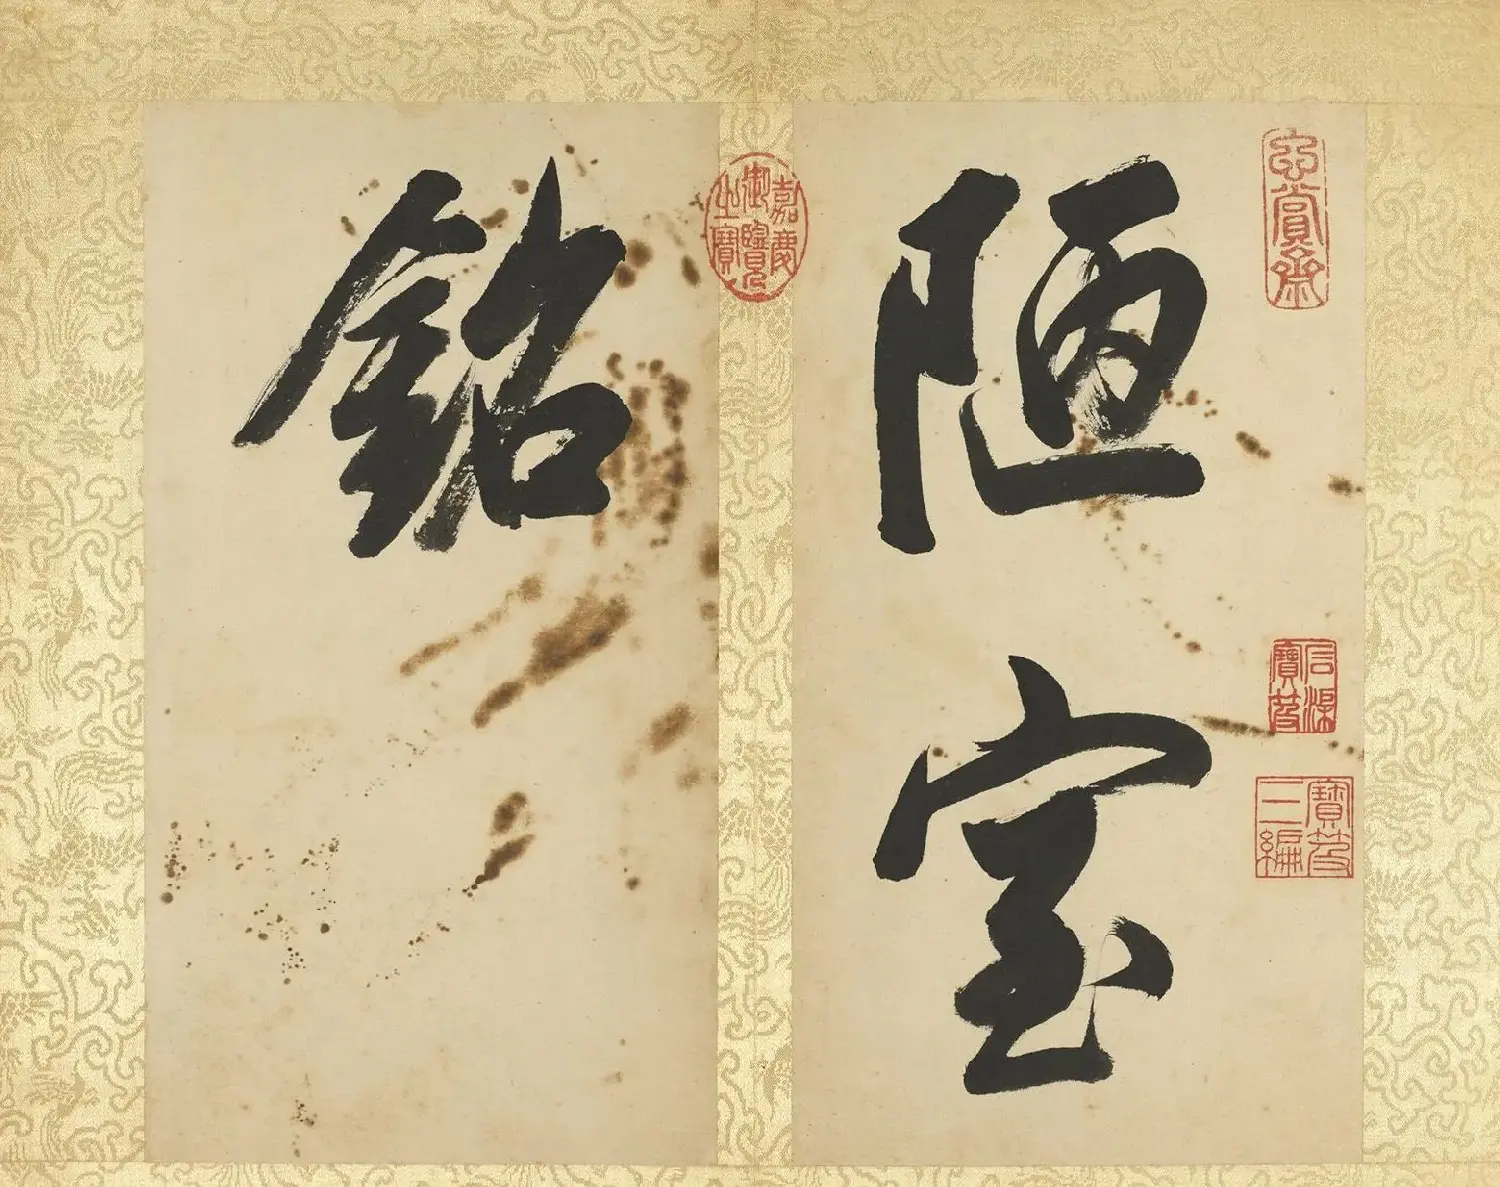 陋室
銘
玄賞齋
嘉慶御覽之寶
石渠寶笈
寶笈三編